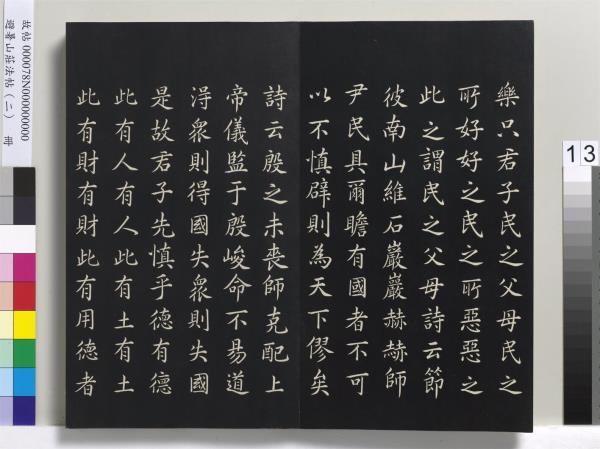 樂只君子民之父母民之
所好好之民之所惡惡之
此之謂民之父母詩云節
彼南山維石巖巖赫赫師
尹民具爾瞻有國者不可
以不慎辟則為天下僇矣
詩云殷之未喪師克配上
帝儀監于殷峻命不易道
得眾則得國失眾則失國
是故君子先慎乎德有德
此有人有人此有土有土
此有財有財此有用德者
故帖000078N000000000
避暑山莊法帖(二) 冊
13